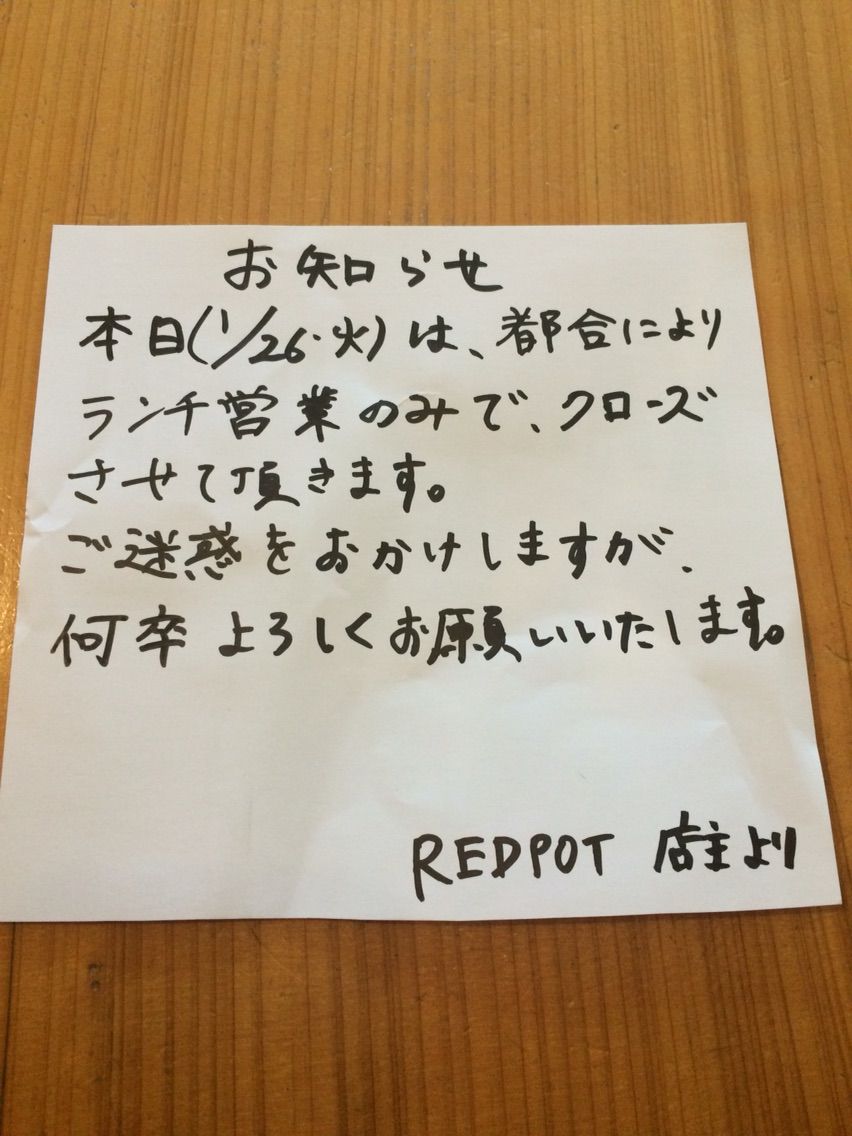 お知らせ
本日(1/26・火)は、都合により
ランチ営業のみで、クローズ
させて頂きます。
ご迷惑をおかけしますが、
何卒よろしくお願いいたします。
REDPOT 店主より